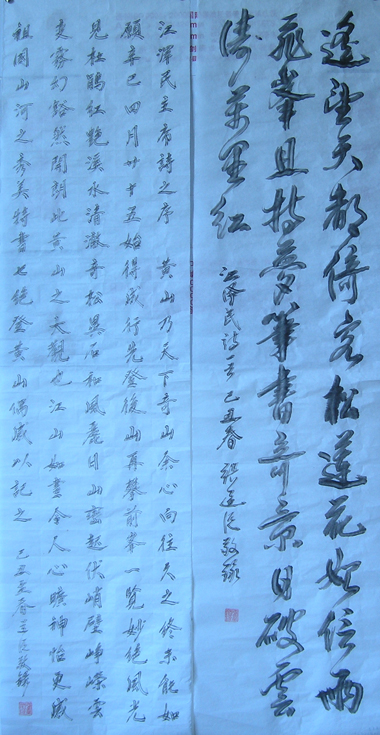 遥望天都倚客松莲花始信两
飞峰且持梦笔书奇景日破云
涛万里红
江泽民诗一首 己丑春 敬录
江泽民主席詩之序 黄山乃天下奇山余心向往久之终未能如
願辛巳四月廿十五始得成行先登後山再攀前峯一覧妙绝風光
見杜鹃红艳溪水清澈奇松異石和風麗日山峦起伏峭壁峥嵘雲
变霧幻豁然開朗此黄山之大觀也江山如畫令人心曠神怡更感
祖国山河之秀美特書七绝登黄山偶感以記之 己丑孟春